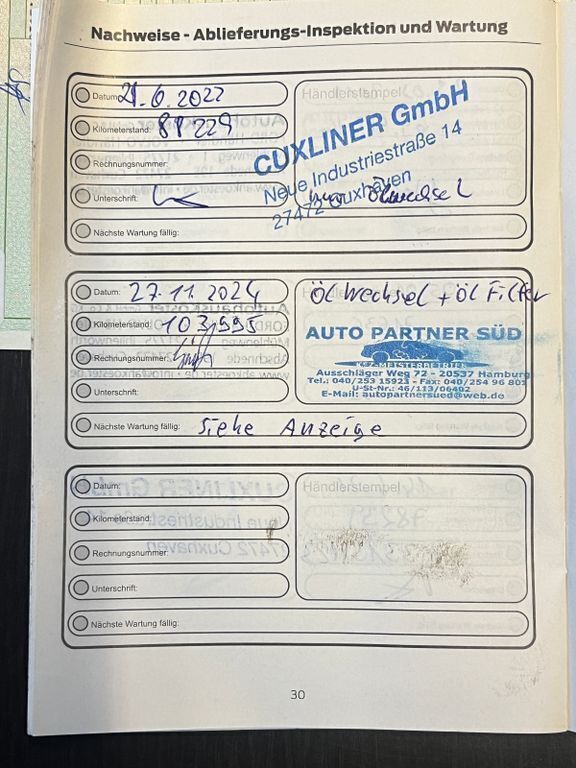 Nachweise - Ablieferungs-Inspektion und Wartung
Datum: 21.6.2022
Händlerstempel
Kilometerstand: 81229
CUXLINER GmbH
Rechnungsnummer:
Neue Industriestraße 14
27472 Cuxhaven
Unterschrift:
Ölwechsel
Nächste Wartung fällig:
Datum: 27.11.2024
Öl Wechsel + Öl Filter
Kilometerstand: 103,595
AUTO PARTNER SÜD
KFZ-MEISTERBETRIEB
Rechnungsnummer:
Ausschläger Weg 72 - 20537 Hamburg
Tel.: 040/253 15923 - Fax: 040/254 96 801
Unterschrift:
U-St-Nr.: 46/113/06402
E-Mail: autopartnersued@web.de
Nächste Wartung fällig: Siehe Anzeige
Datum:
Händlerstempel
Kilometerstand:
Rechnungsnummer:
Unterschrift:
Nächste Wartung fällig:
30